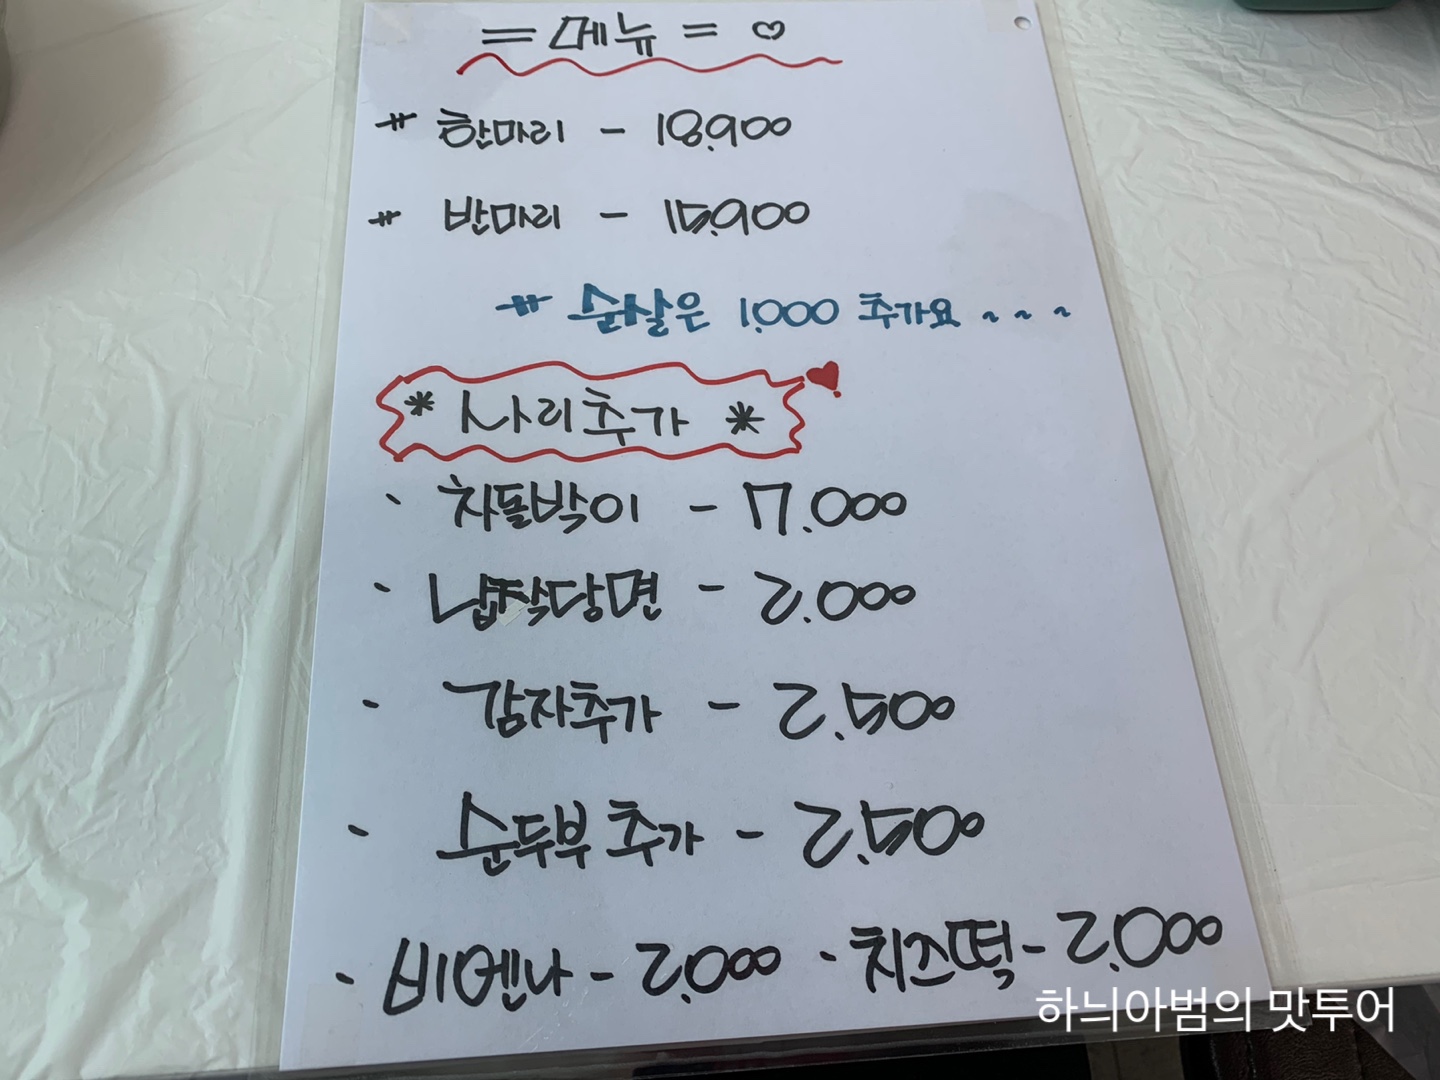 = 메뉴 = ♡
# 한마리 - 18.900
# 반마리 - 15.900
# 순살은 1.000 추가요 ~ ~ ~
* 사리추가 *
· 차돌박이 - 7.000
· 납작당면 - 2.000
· 감자추가 - 2.500
· 순두부 추가 - 2.500
· 비엔나 - 2.000 · 치즈떡 - 2.000
하늬아범의 맛투어